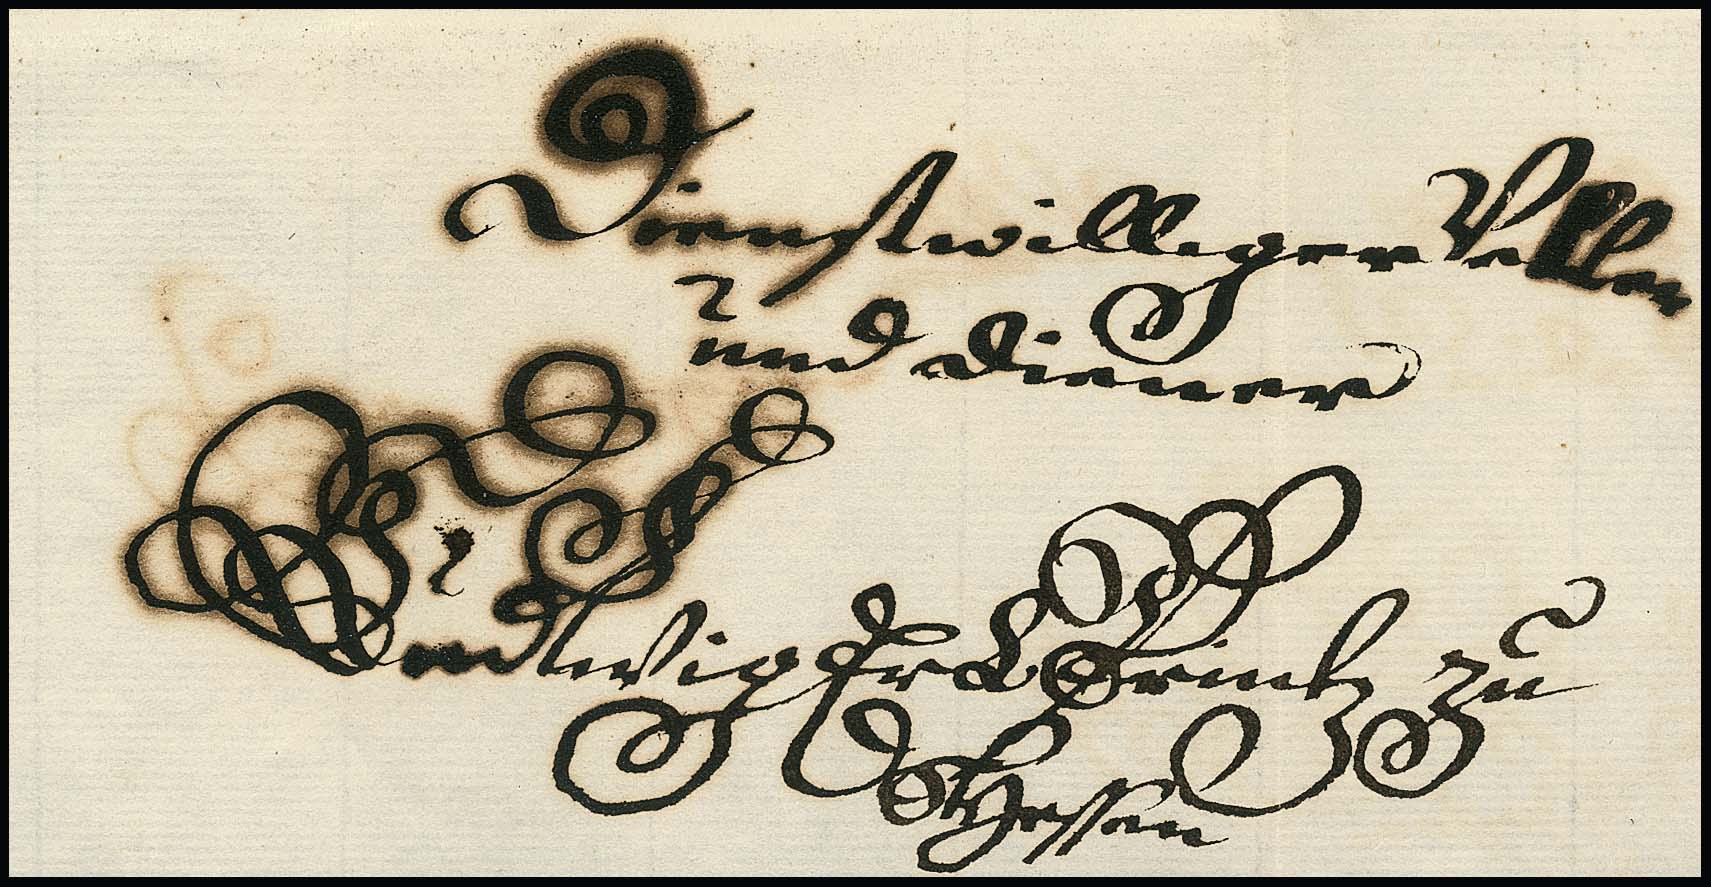 Dienstwilliger Vetter
und Diener
Ludwig Erb Printz Zu
Hessen